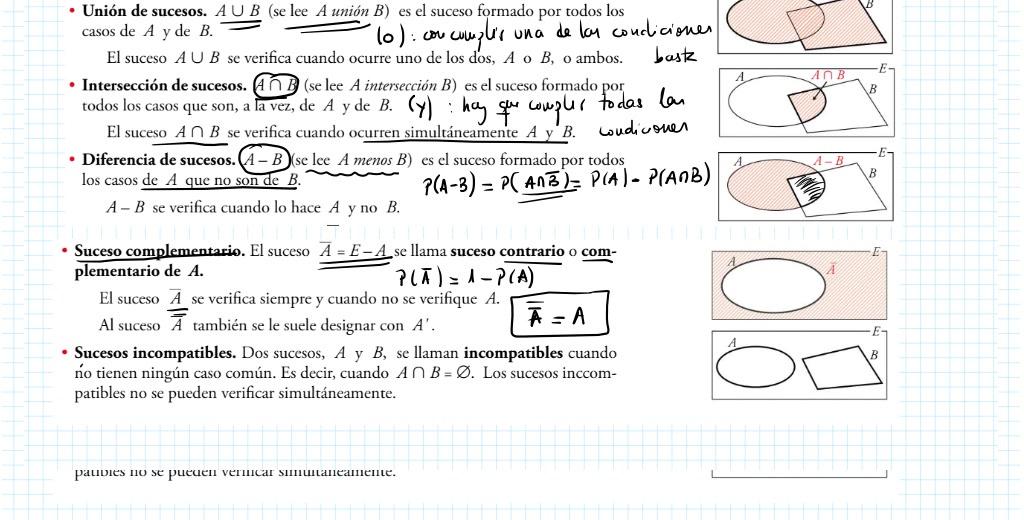 • Unión de sucesos. A ∪ B (se lee A unión B) es el suceso formado por todos los
casos de A y de B.
(o) : con cumplir una de las condiciones
basta
El suceso A ∪ B se verifica cuando ocurre uno de los dos, A o B, o ambos.
B
• Intersección de sucesos. A ∩ B (se lee A intersección B) es el suceso formado por
todos los casos que son, a la vez, de A y de B.
(y) : hay que cumplir todas las
condiciones
El suceso A ∩ B se verifica cuando ocurren simultáneamente A y B.
A A ∩ B E
B
• Diferencia de sucesos. A – B (se lee A menos B) es el suceso formado por todos
los casos de A que no son de B.
P(A-B) = P(A∩B̅) = P(A) - P(A∩B)
A – B se verifica cuando lo hace A y no B.
A A – B E
B
• Suceso complementario. El suceso A̅ = E – A se llama suceso contrario o com-
plementario de A.
P(A̅) = 1 - P(A)
El suceso A̅ se verifica siempre y cuando no se verifique A.
Al suceso A̅ también se le suele designar con A'.
A̿ = A
A A̅ E
• Sucesos incompatibles. Dos sucesos, A y B, se llaman incompatibles cuando
no tienen ningún caso común. Es decir, cuando A ∩ B = Ø. Los sucesos inccom-
patibles no se pueden verificar simultáneamente.
A E
B
patibles no se pueden verificar simultáneamente.